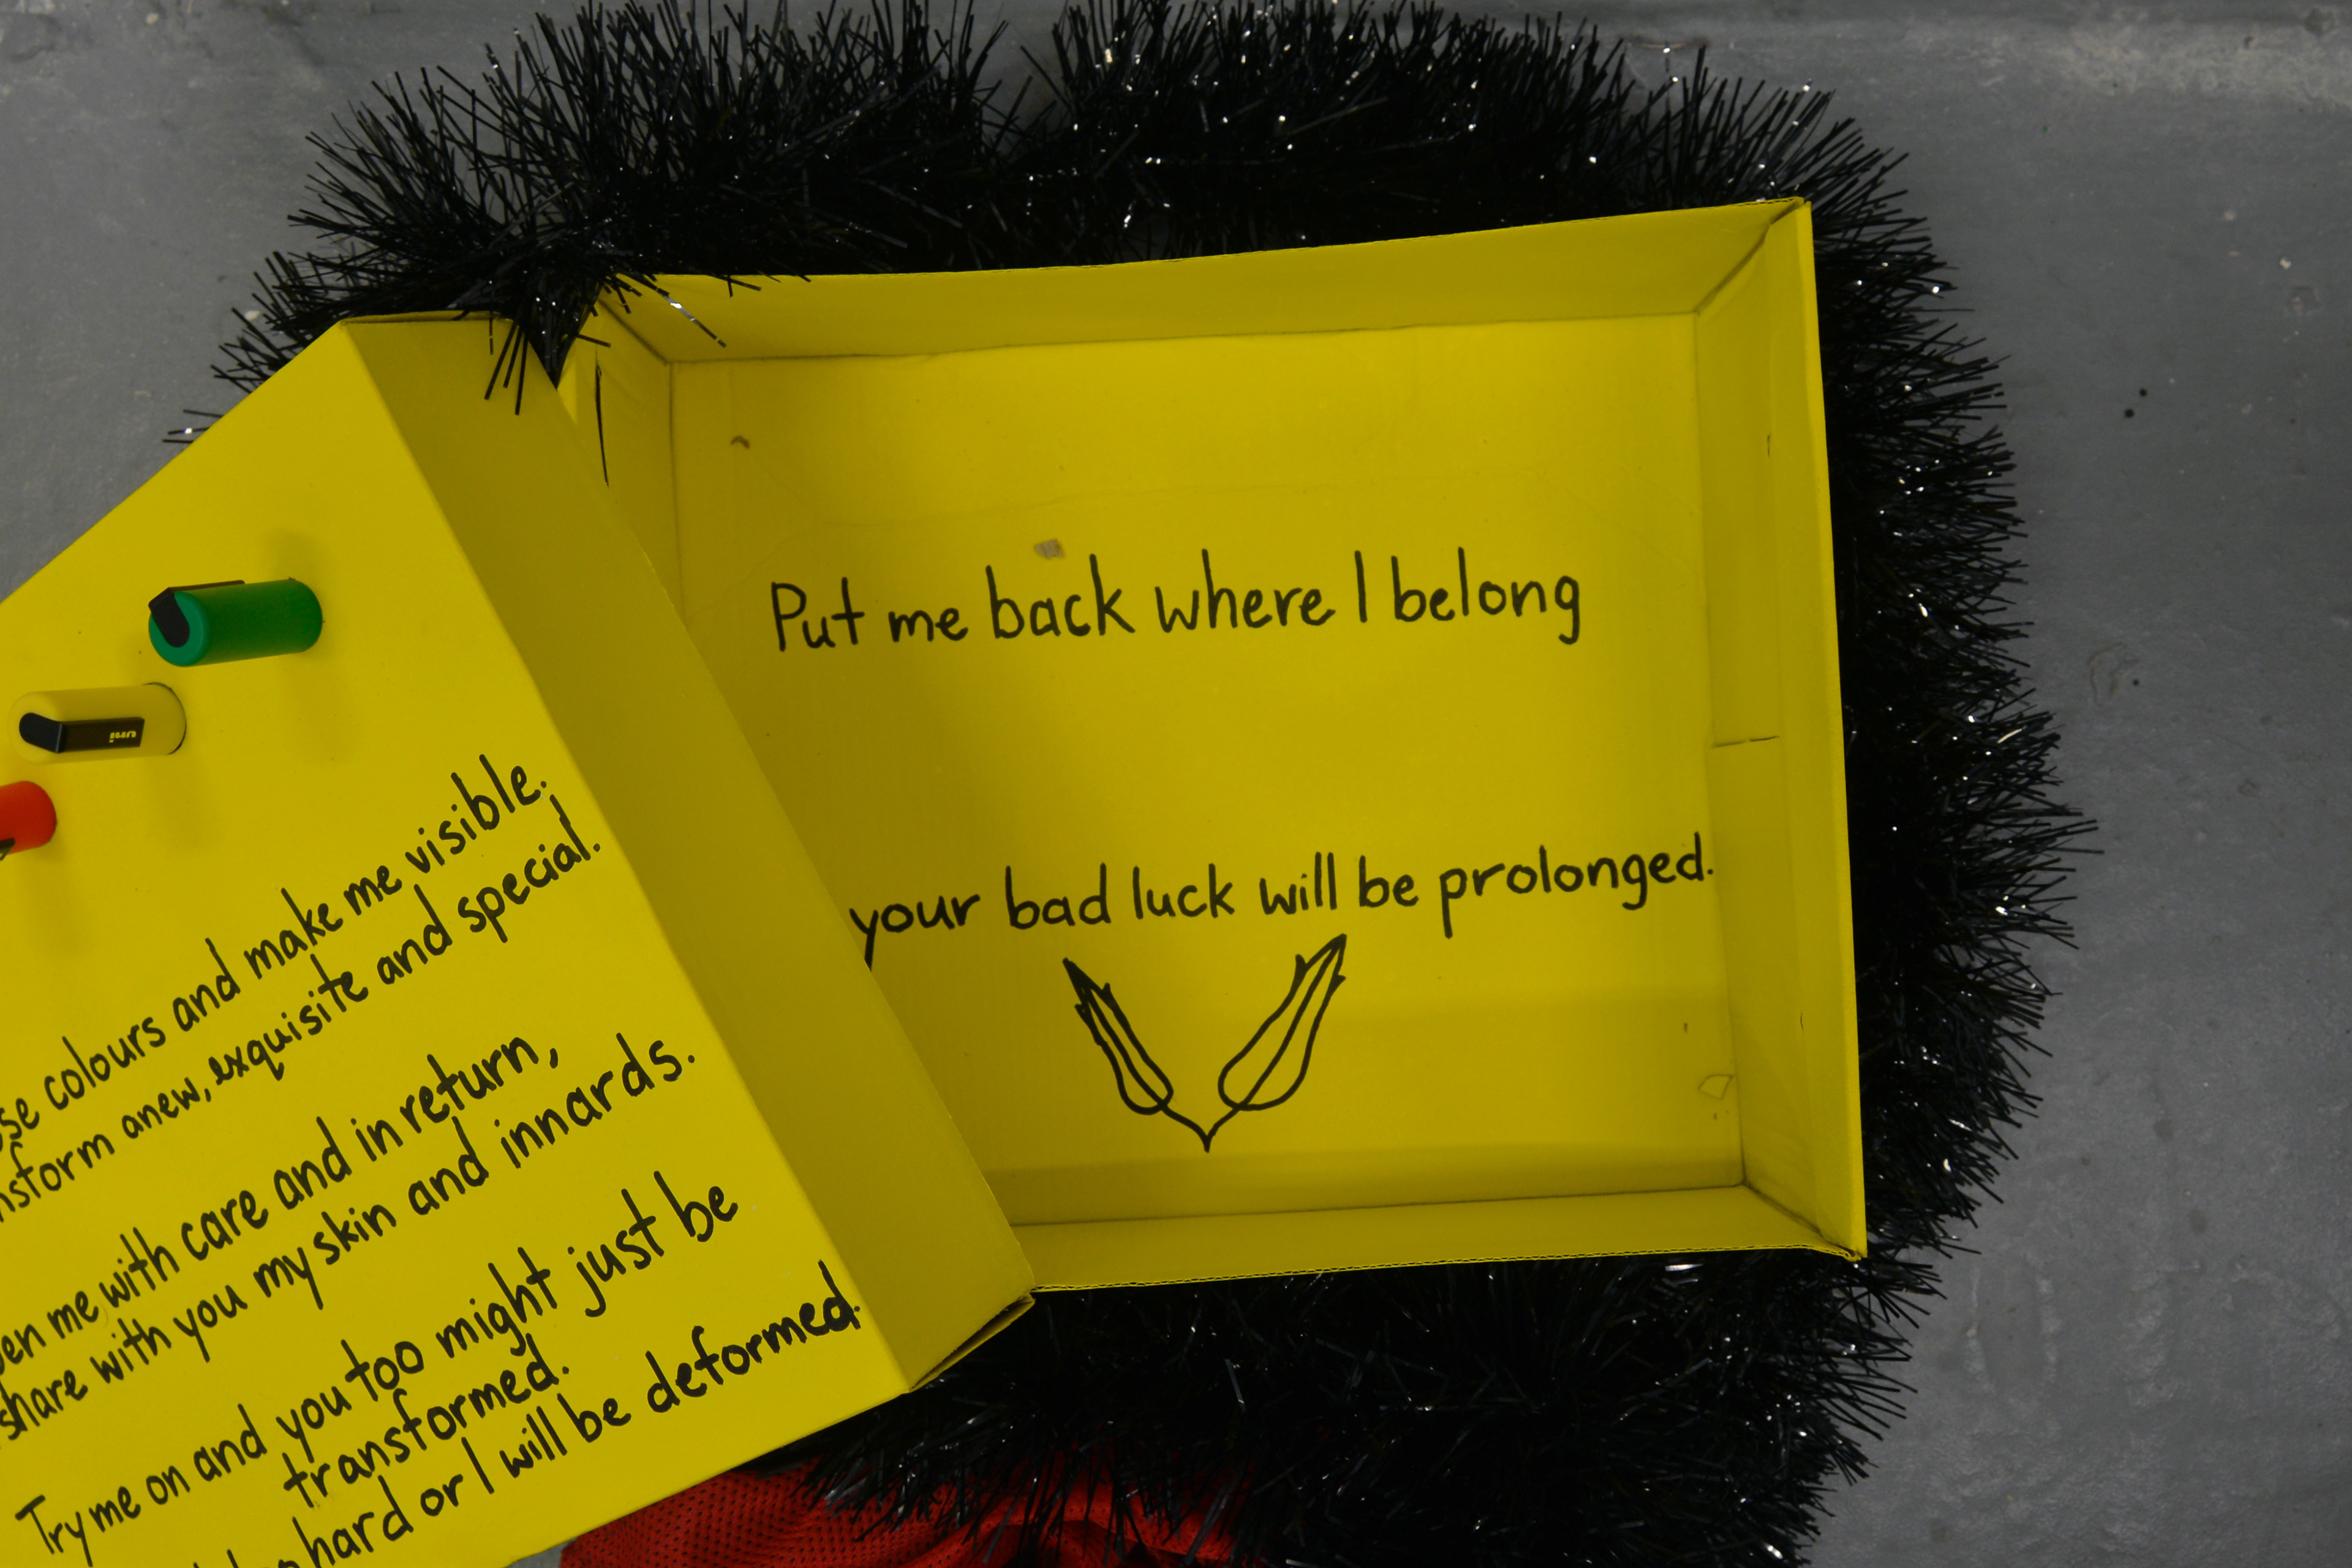 Put me back where I belong
your bad luck will be prolonged.
colours and make me visible.
anew, exquisite and special.
me with care and in return,
share with you my skin and innards.
Try me on and you too might just be
transformed.
hard or I will be deformed.